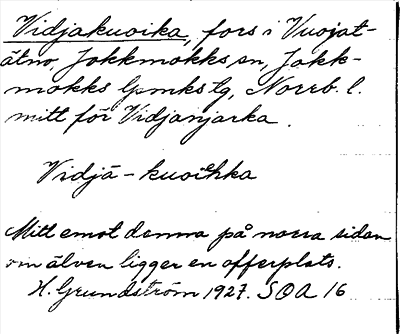 Vidjakuoika, fors i Vuojat-
ätno, Jokkmokks sn, Jokk-
mokks lpmks tg, Norrb. l.
mitt för Vidjanjarka.
Vidjā-kuoihka
Mitt emot denna på norra sidan
om älven ligger en offerplats.
H. Grundström 1927. SOA 16